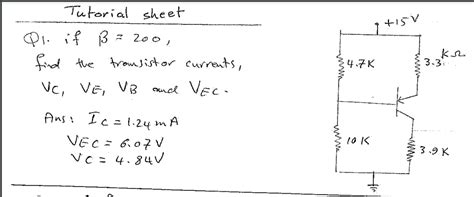 Tutorial sheet
Q1. if β = 200,
find the transistor currents,
VC, VE, VB and VEC.
Ans: IC = 1.24 mA
VEC = 6.07 V
VC = 4.84V
+15 V
4.7K
3.3 KΩ
10 K
3.9K